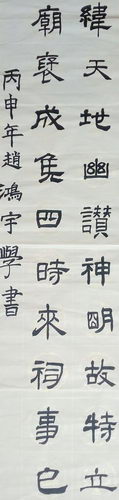 緯天地幽讃神明故特立
廟褒成侯四時來祠事已
丙申年趙鴻宇學書